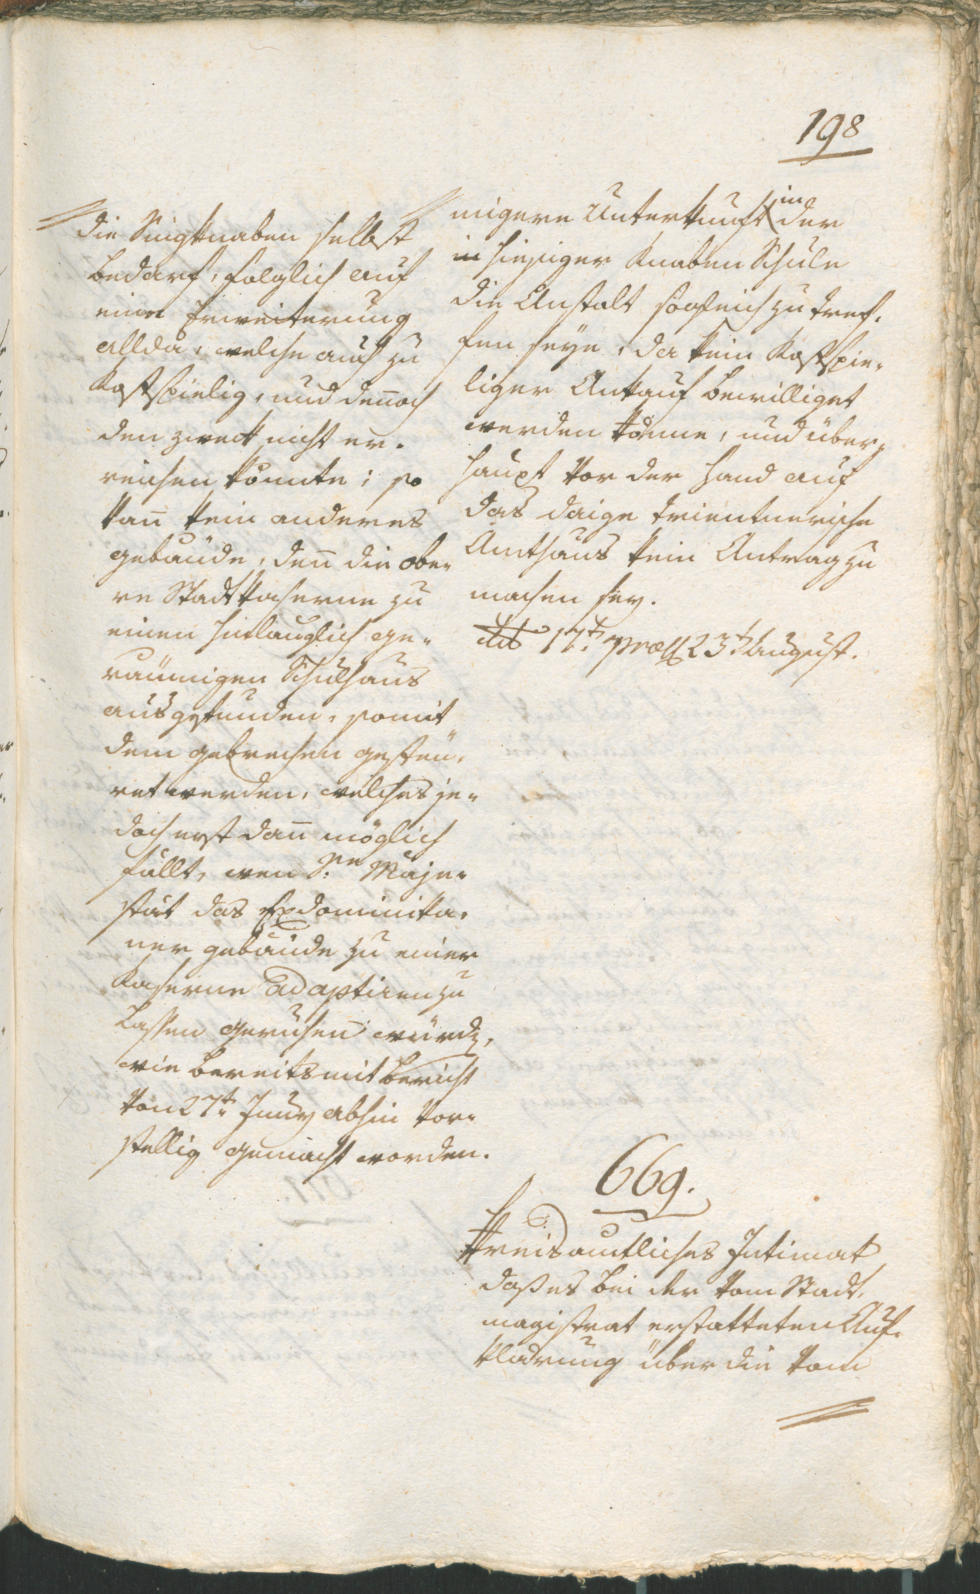 198
die Singknaben selbst
bedarf, folglich auf
eine Erweiterung
allda, welche auch zu
kostspielig, und dennoch
den zweck nicht er-
reichen könnte; so
kan̄ kein anderes
gebäude, den̄ die obe-
re Stadtkaserne zu
einen hinlänglich ge-
räumigen Schulhaus
ausgefunden, somit
dem gebrechen gesteü-
ret werden, welches je-
doch erst dan̄ möglich
fällt, wen Se. Maje-
stät das Exdominika-
ner gebäude zu einer
Kaserne adaptiren zu
lassen geruhen würde,
wie bereits mit bericht
von 27t. Juny abhin vor-
stellig gemacht worden.
migere Unterkunft im der
in hiesiger Knaben Schule
die Anstalt sogleich zu tref-
fen seye, da kein Kostspie-
liger Ankauf bewilliget
werden könne, und über-
haupt vor der Hand auf
das daige trientnerische
Amthaus kein Antrag zu
machen sey.
dto 17t. præs 23t. August.
669.
Kreisamtliches Intimat
daß es bei der vom Stadt-
magistrat erstatteten Auf-
klärung über die vom